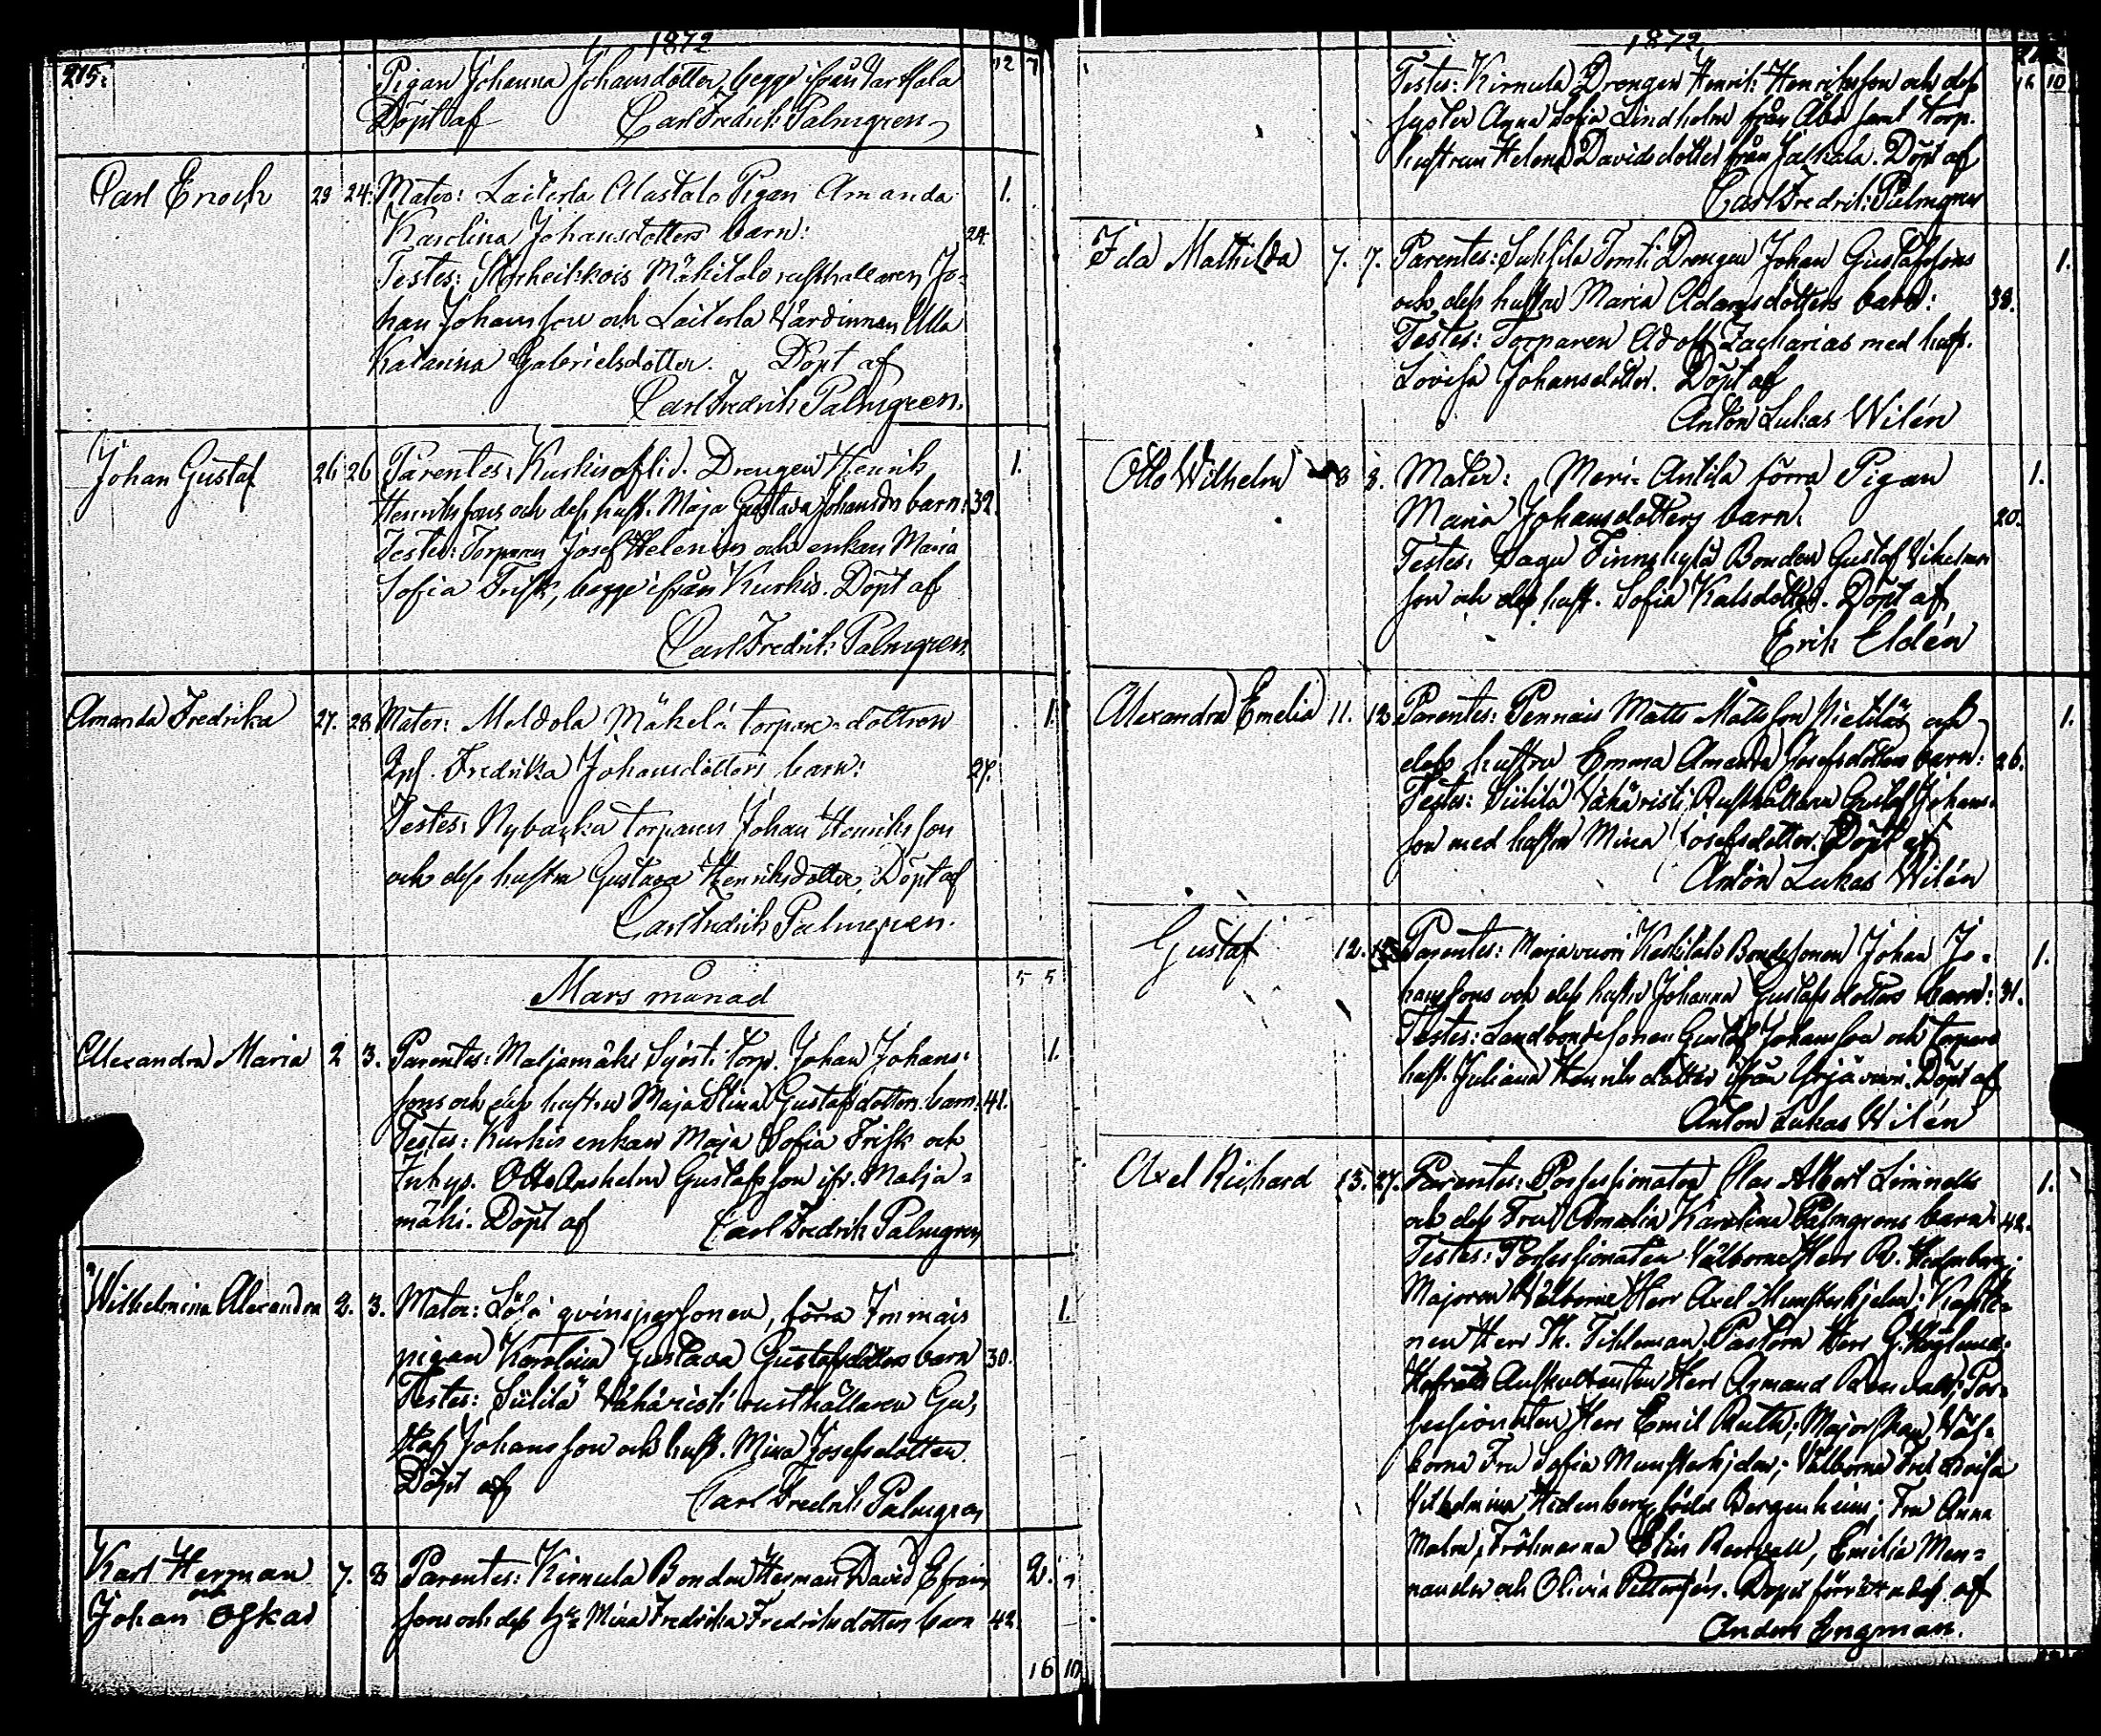 1872
215.
12 7
Pigan Johanna Johansdotter, begge ifrån Varttala
Döpt af Carl Fredrik Palmgren
Carl Enoch 23 24. Mater: Laiterla Alastalo Pigan Amanda 1.
Karolina Johansdotters barn: 24.
Testes: Storheikkois Mäkitalo rusthallaren Jo-
han Johansson och Laiterla Värdinnan Ulla
Katarina Gabrielsdotter. Döpt af
Carl Fredrik Palmgren.
Johan Gustaf 26 26 Parentes: Kurkis Drengen Henrik 1.
Henrikssons och dess hust. Maja Gustava Johansdrs barn: 32.
Testes: Torparen Josef Helenius och enkan Maria
Sofia Frisk, begge ifrån Kurkis. Döpt af
Carl Fredrik Palmgren
Amanda Fredrika 27. 28. Mater: Meldola Mäkelä torpare-dottren 1.
Qpf. Fredrika Johansdotters barn: 27.
Testes: Nybacka torparen Johan Henriksson
och dess hustru Gustava Henriksdotter, Döpt af
Carl Fredrik Palmgren.
Mars månad 5 5
Alexandra Maria 2 3. Parentes: Maljamäki Syösti torp. Johan Johans- 1.
sons och dess hustru Maja Stina Gustafsdotters barn: 41.
Testes: Kurkis enkan Maja Sofia Frisk och
Inhys. Otto Anshelm Gustafsson ifr. Malja-
mäki. Döpt af Carl Fredrik Palmgren
Wilhelmina Alexandra 2. 3. Mater: Sölä qvinspersonen, förra Immais 1.
pigan Karolina Gustava Gustafsdotters barn 30.
Testes: Siitilä Vähäristi rusthållaren Gu-
staf Johansson och hust. Mina Josefsdotter.
Döpt af Carl Fredrik Palmgren
Karl Herman 7. 8 Parentes: Kirmula Bonden Herman David Efraim 2.
och
Johan Oskar sons och dess hu Mina Fredrika Fredriksdotters barn 42.
16 10
1872
16 10
Testes: Kirmula Drengen Henrik Henriksson och dess
syster Anna Sofia Lindholm från Åbo samt torp.
hustrun Helena Davidsdotter från Jalkala. Döpt af
Carl Fredrik Palmgren
Ida Mathilda 7. 7. Parentes: Suksila Tomti Drengen Johan Gustafssons 1.
och dess hustru Maria Adamsdotters barn: 38.
Testes: Torparen Adolf Zacharias med hust.
Lovisa Johansdotter. Döpt af
Anton Lukas Wilén
Otto Wilhelm 8 8. Mater: Meri-Antila förra Pigan 1.
Maria Johansdotters barn. 20.
Testes: Sagu Finnskylä Bonden Gustaf Vilhelms
son och dess hust. Sofia Kalsdotter. Döpt af
Erik Eldén
Alexandra Emelia 11. 12 Parentes: Pennais Matts Mattsson Nietiläs och 1.
dess hustru Emma Amanda Josefsdotters barn: 26.
Testes: Siitilä Vähäristi Rusthållaren Gustaf Johans-
son med hustru Mina Josefsdotter. Döpt af
Anton Lukas Wilén
Gustaf 12. Parentes: Marjavuori Keskitalo Bondesonen Johan Jo- 1.
hanssons och dess hustru Johanna Gustafsdotters barn: 31.
Testes: Landbondesonen Gustaf Johansson och torpare
hust. Juliana Henriksdotter ifrån Yrjävuori. Döpt af
Anton Lukas Wilén
Axel Richard 13. 27. Parentes: Possessionaten Clas Albert Limnells 1.
och dess Fru Amalia Karolina Palmgrens barn 42.
Testes: Possessionaten Välborne Herr R.
Majoren Välborne Herr Axel Munsterhjelm;
nen Herr Th. Tihleman; Pastorn Herr G.
Hofrätts Auskultanten Herr Armand Renvall; Pos-
sessionaten Herr Emil Ruth; Majorskan, Väl-
borna Fru Sofia Munsterhjelm; Välborna Fru Lovisa
Vilhelmina Hedenberg, född Bergenheim; Fru Anna
Malm, Fröknarna Elin Renvall, Emilia Men-
nander och Olivia Pettersén. Döpet förrättades af
Anders Engman.